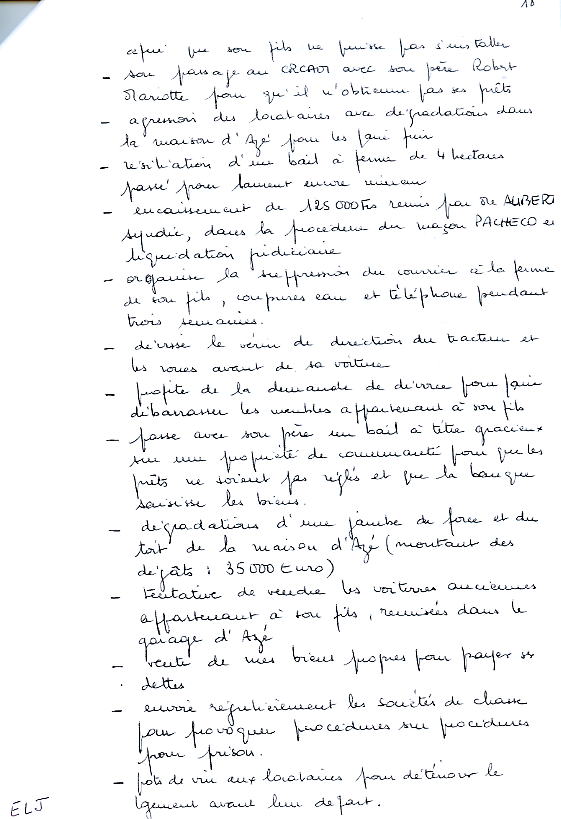 18
afin que son fils ne puisse pas s'installer
- son passage au CRCAM avec son père Robert
Mariotte pour qu'il n'obtienne pas ses prêts
- agression des locataires avec dégradations dans
la maison d'Azé pour les faire fuir
- résiliation d'un bail à ferme de 4 hectares
passé pour Laurent encore mineur
- encaissement de 125 000 Frs remis par Me AUBERT
syndic, dans la procédure du maçon PACHECO en
liquidation judiciaire
- organise la suppression du courrier à la ferme
de son fils, coupures eau et téléphone pendant
trois semaines.
- dévisse le vérin de direction du tracteur et
les roues avant de sa voiture
- profite de la demande de divorce pour faire
débarrasser les meubles appartenant à son fils
- passe avec son père un bail à titre gracieux
sur une propriété de communauté pour que les
prêts ne soient pas réglés et que la banque
saisisse les biens.
- dégradations d'une jambe de force et du
toit de la maison d'Azé (montant des
dégâts : 35000 Euro)
- tentative de vendre les voitures anciennes
appartenant à son fils, remisées dans le
garage d'Azé
- vente de mes biens propres pour payer ses
dettes
- envoie régulièrement les sociétés de chasse
pour provoquer procédures sur procédures
pour prison.
- pots de vin aux locataires pour détériorer le
logement avant leur départ.
ELJ